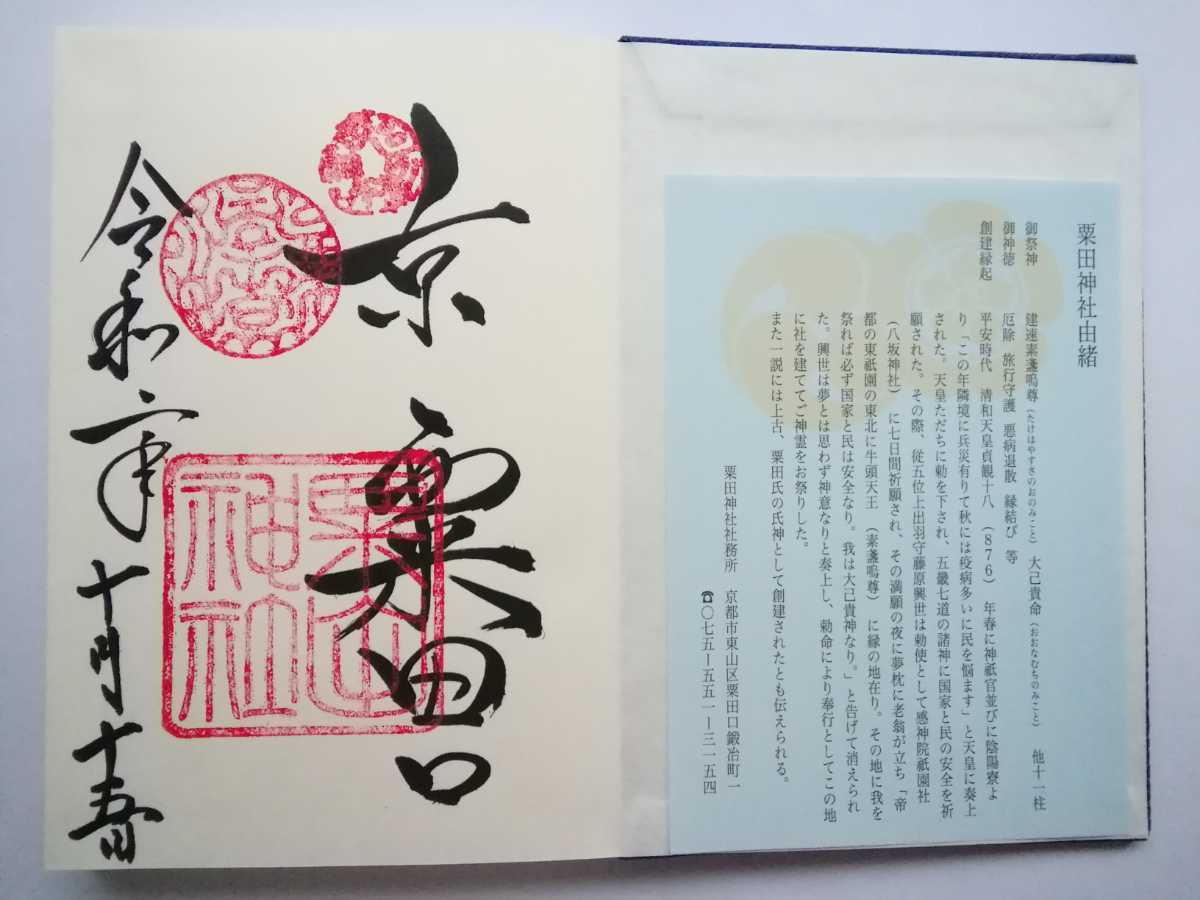 粟田神社由緒
御祭神　建速素盞嗚尊（たけはやすさのおのみこと）　大己貴命（おおなむちのみこと）　他十一柱
御神徳　厄除　旅行守護　悪病退散　縁結び　等
創建縁起　平安時代　清和天皇貞観十八　（876）　年春に神祇官並びに陰陽寮よ
り「この年隣境に兵災有りて秋には疫病多いに民を悩ます」と天皇に奏上
された。天皇ただちに勅を下され、五畿七道の諸神に国家と民の安全を祈
願された。その際、従五位上出羽守藤原興世は勅使として感神院祇園社
（八坂神社）に七日間祈願され、その満願の夜に夢枕に老翁が立ち「帝
都の東祇園の東北に牛頭天王　（素盞嗚尊）　に縁の地在り。その地に我を
祭れば必ず国家と民は安全なり。我は大己貴神なり。」と告げて消えられ
た。興世は夢とは思わず神意なりと奏上し、勅命により奉行としてこの地
に社を建ててご神霊をお祭りした。
また一説には上古、粟田氏の氏神として創建されたとも伝えられる。
粟田神社社務所　京都市東山区粟田口鍛冶町一
☎〇七五－五五一－三一五四
京 粟田口
粟田
神社
令和二年十月十五日